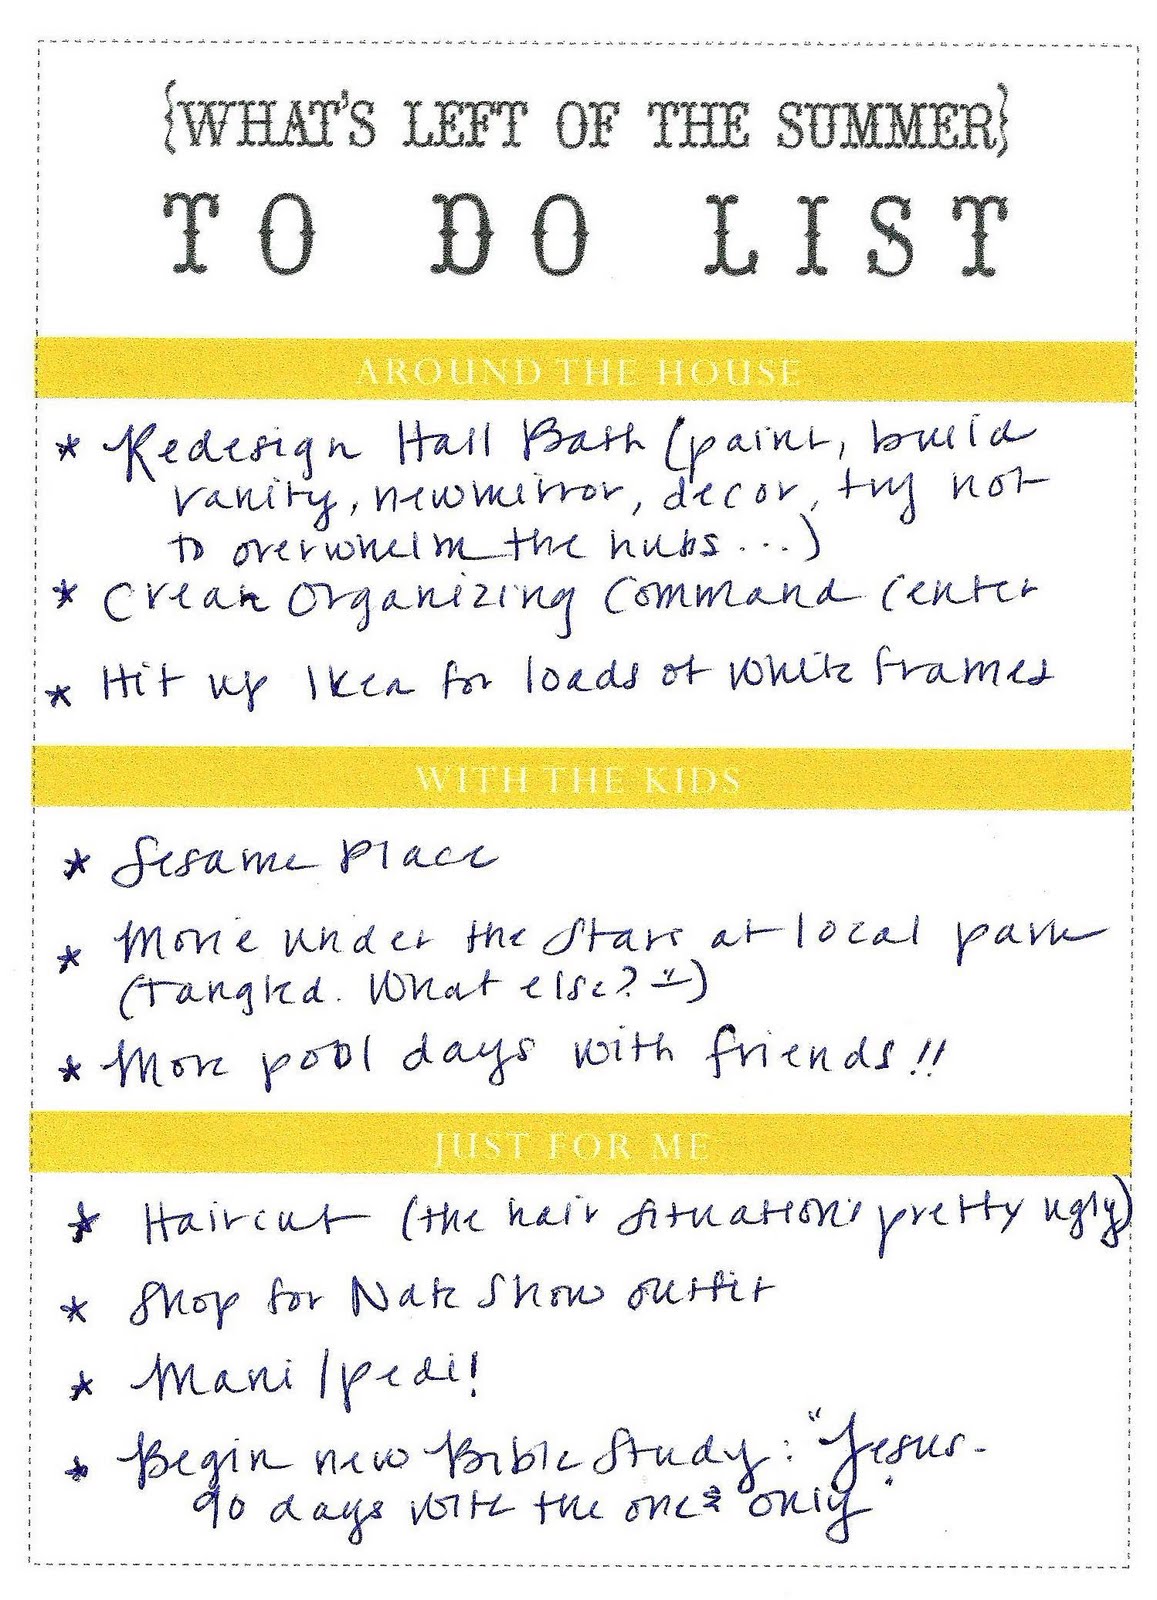 {WHAT'S LEFT OF THE SUMMER}
TO DO LIST
AROUND THE HOUSE
* Redesign Hall Bath (paint, build
vanity, new mirror, decor, try not
to overwhelm the hubs...)
* Create Organizing Command Center
* Hit up Ikea for loads of white frames
WITH THE KIDS
* Sesame Place
* Movie under the Stars at local park
(Tangled. What else? :))
* More pool days with friends!!
JUST FOR ME
* Haircut (the hair situation's pretty ugly)
* Shop for Nate Show outfit
* Mani/pedi!
* Begin new Bible Study: "Jesus-
90 days with the one & only"